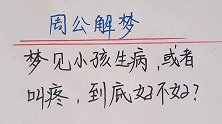 周公解梦
梦见小孩生病，或者
叫疼，到底好不好？